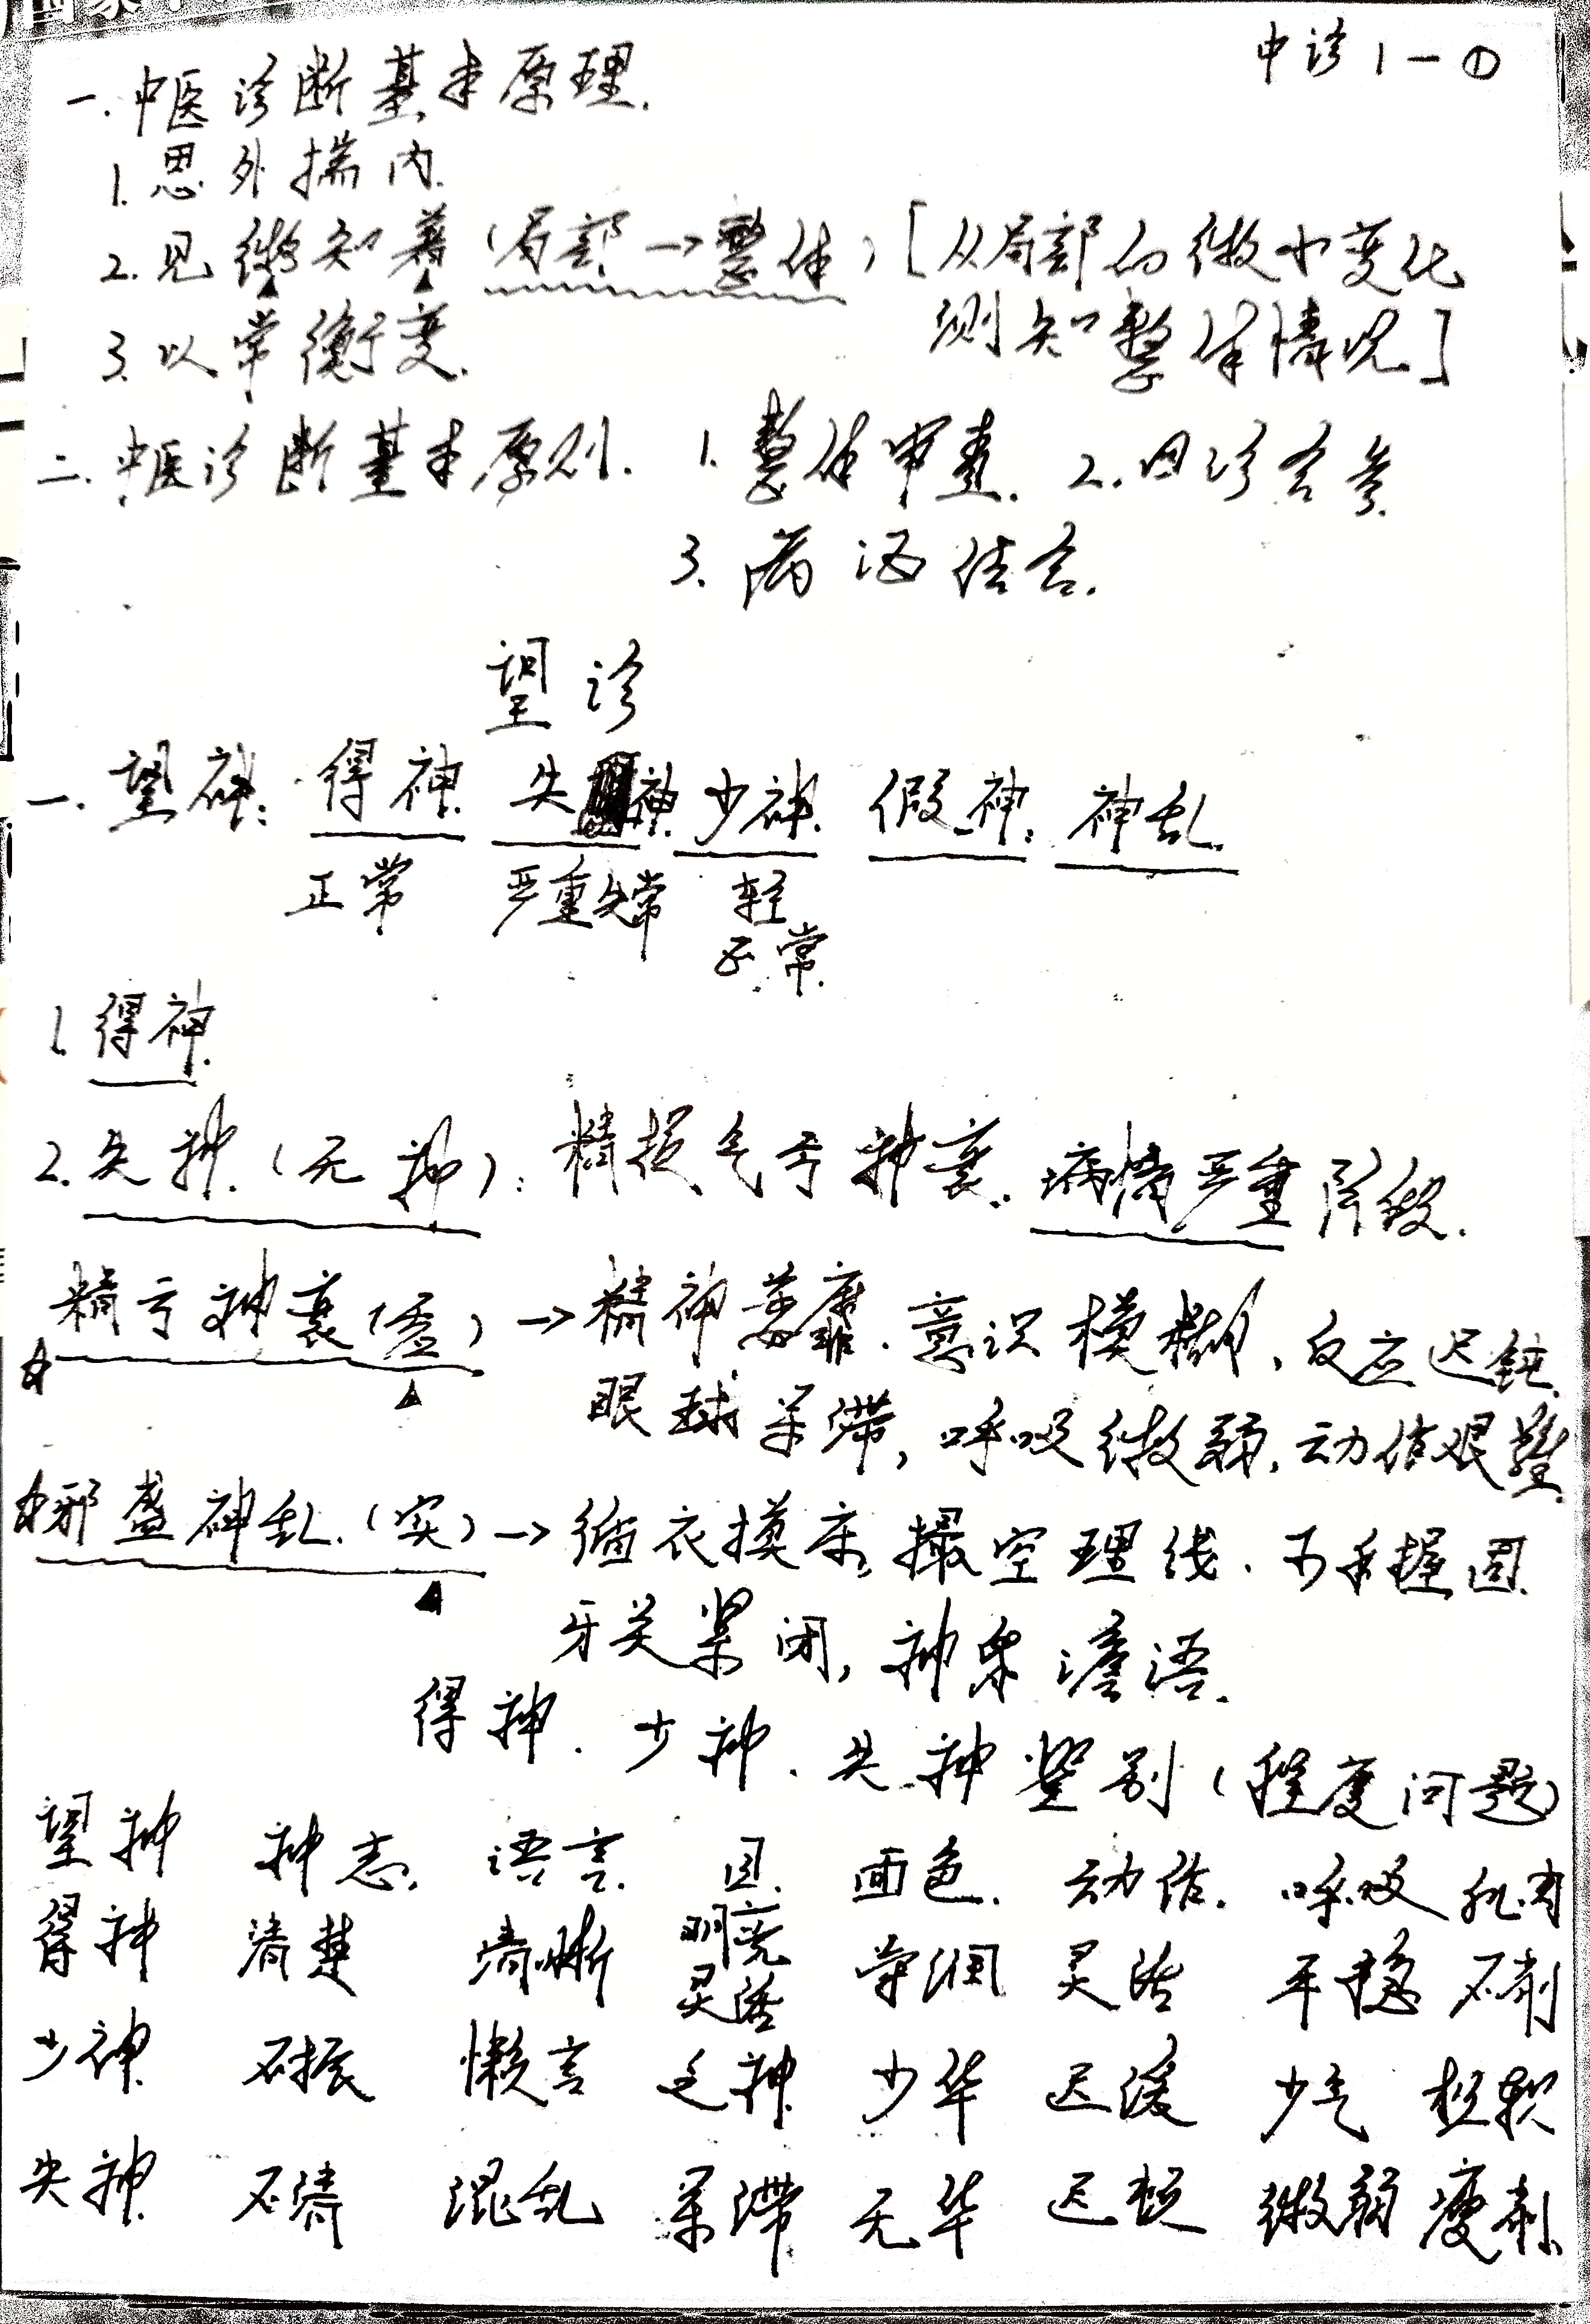 中诊1-①
一.中医诊断基本原理.
1.思外揣内.
2.见微知著(局部→整体)[从局部的微小变化
测知整体情况]
3.以常衡变.
二.中医诊断基本原则. 1.整体审查. 2.四诊合参.
3.病证结合.
望诊
一.望神: 得神. 失神. 少神. 假神. 神乱.
正常 严重失常 轻
不正常.
1.得神.
2.失神.(无神):精损气亏神衰.病情严重阶段.
精亏神衰(虚)→精神萎靡.意识模糊、反应迟钝.
眼球呆滞,呼吸微弱.动作艰难.
邪盛神乱.(实)→循衣摸床,撮空理线.两手握固.
牙关紧闭,神昏谵语.
得神.少神.失神鉴别(程度问题)
望神 神志. 语言. 目. 面色. 动作. 呼吸 肌肉
得神 清楚 清晰 明亮灵活 荣润 灵活 平稳 不削
少神. 不振 懒言 乏神. 少华 迟缓 少气 松软
失神. 不清 混乱 呆滞 无华 迟钝 微弱 瘦削.